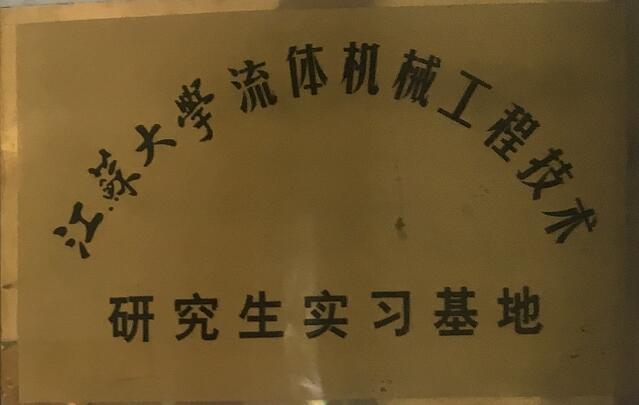 江蘇大學流体机械工程技术
研究生实习基地